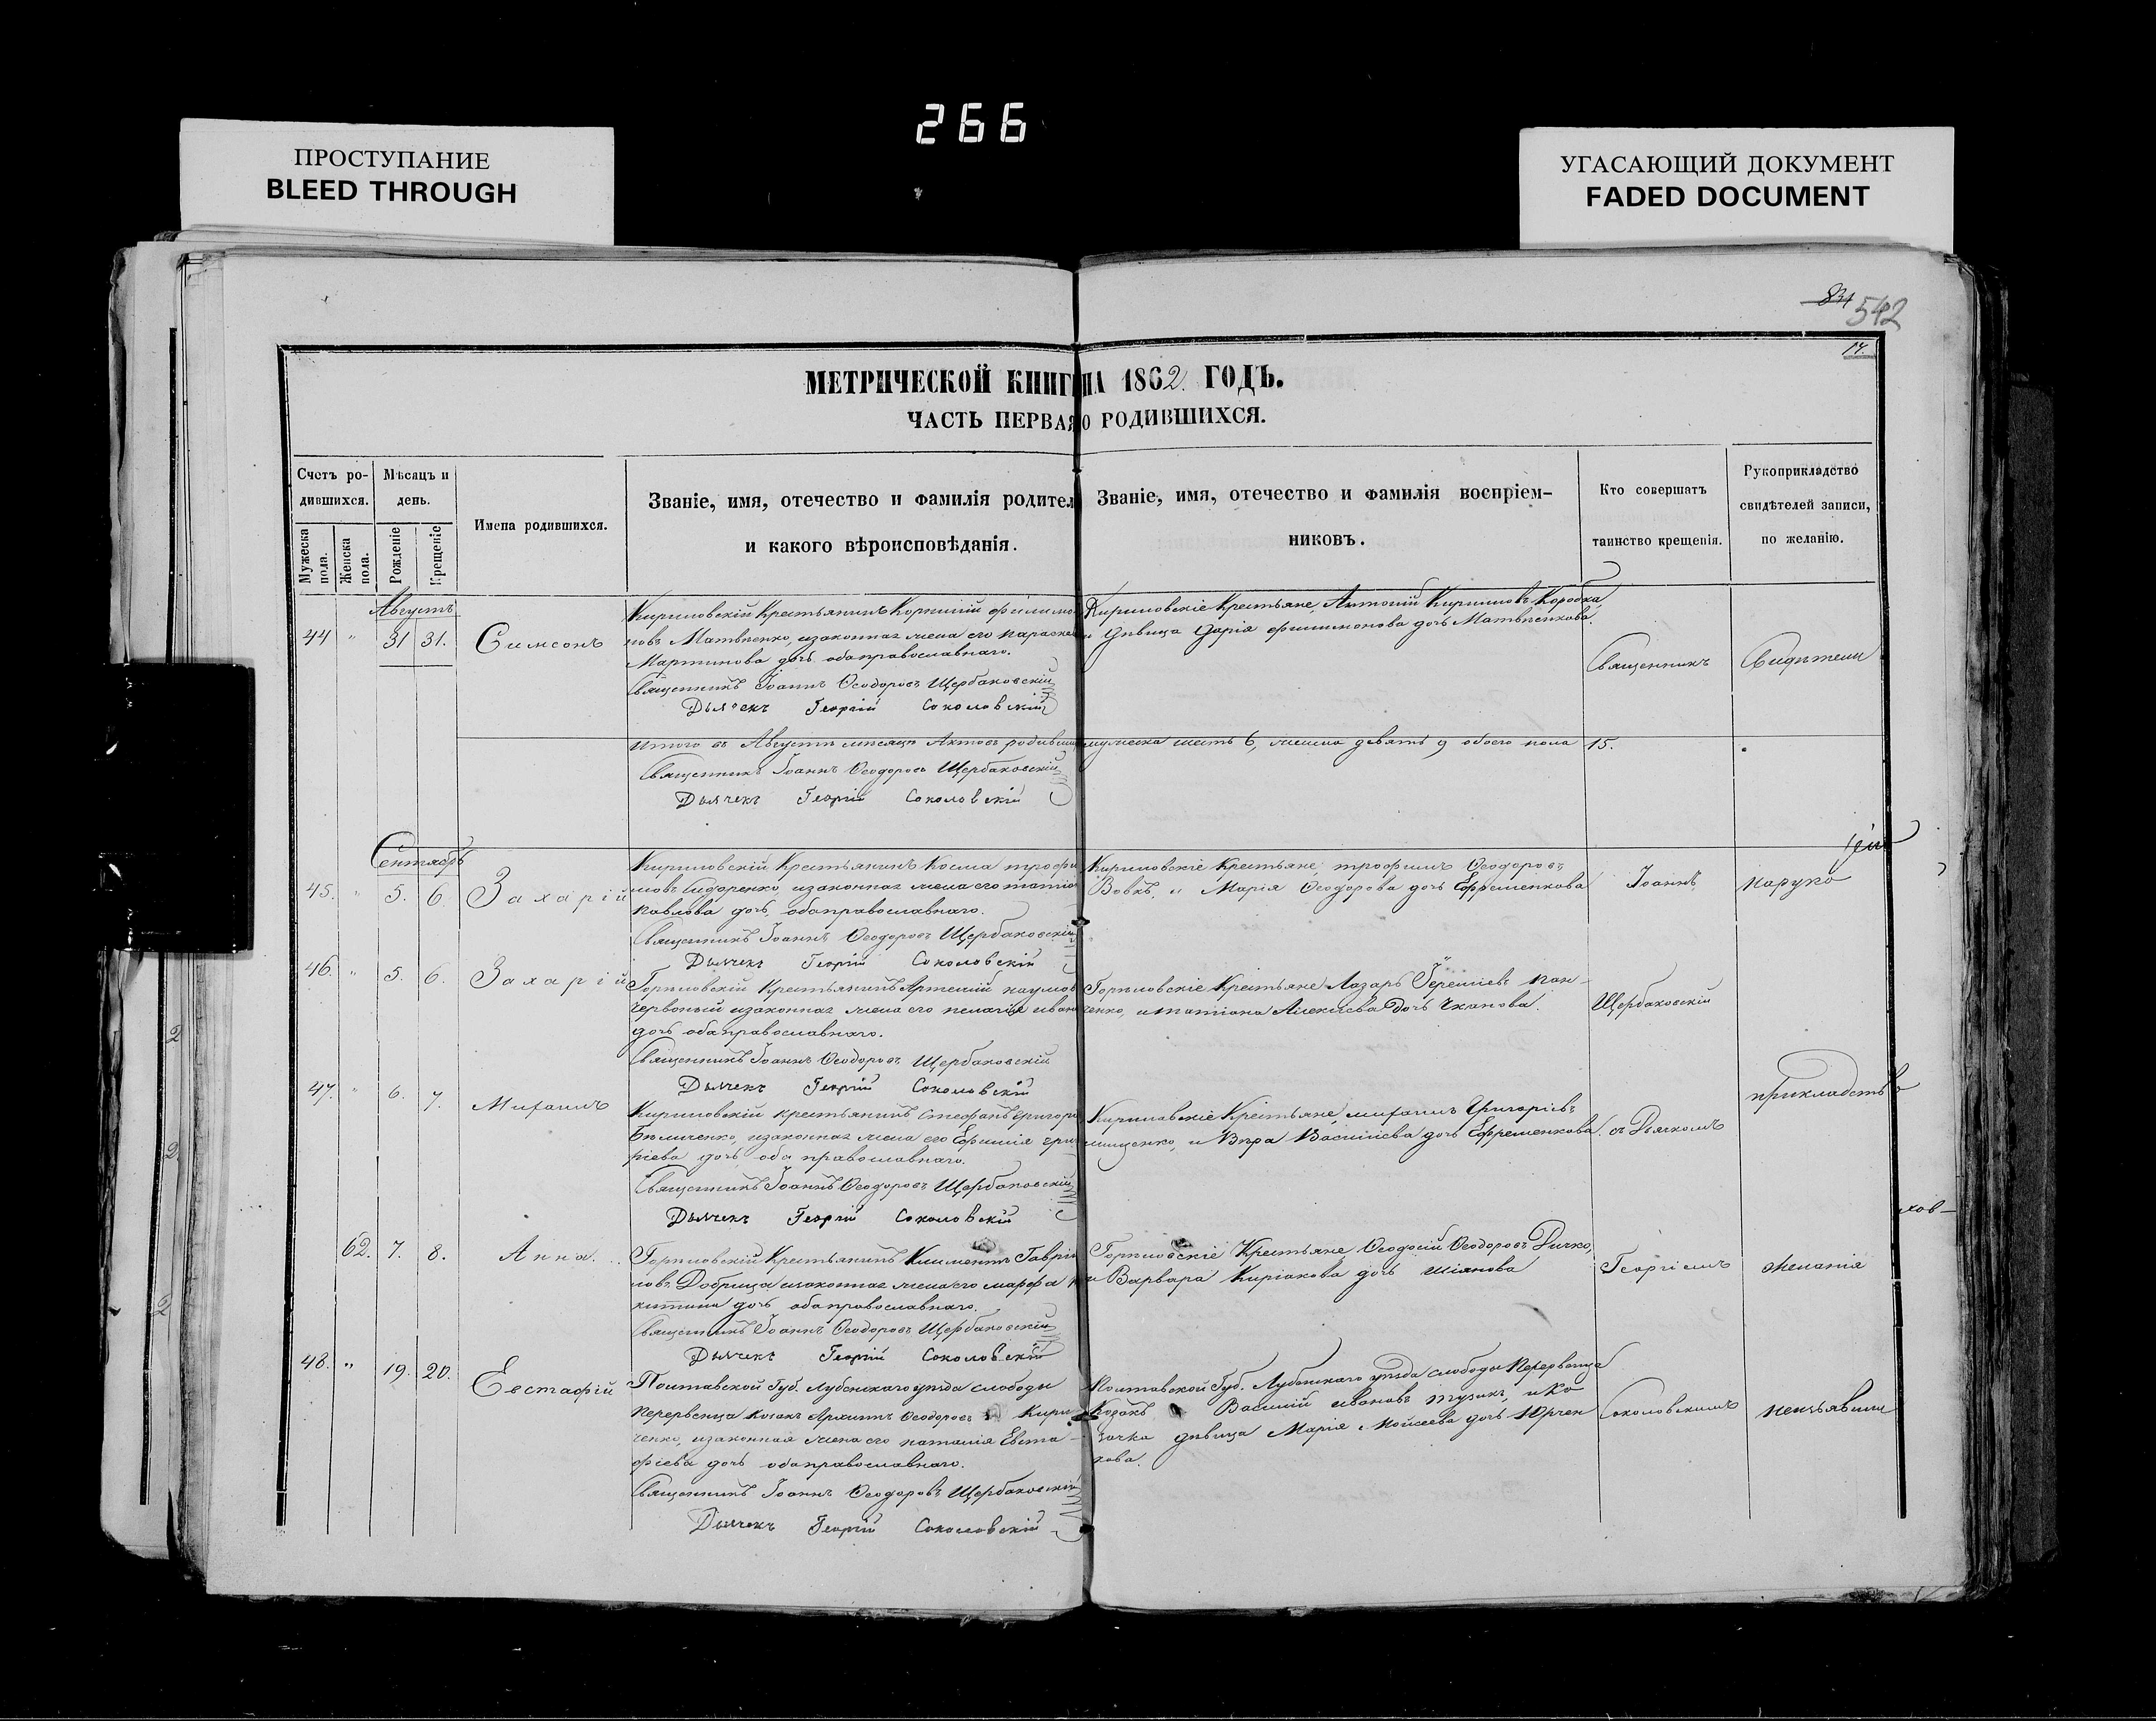 266
ПРОСТУПАНИЕ
BLEED THROUGH
УГАСАЮЩИЙ ДОКУМЕНТ
FADED DOCUMENT
831 542
14.
МЕТРИЧЕСКОЙ КНИГ НА 1862. ГОДЪ.
ЧАСТЬ ПЕРВАЯ О РОДИВШИХСЯ.
Счетъ ро-
дившихся.
Мужеска пола.
Женска пола.
Мѣсяцъ и
день.
Рожденіе
Крещеніе
Имена родившихся.
Званіе, имя, отечество и фамилія родител
и какого вѣроисповѣданія.
Званіе, имя, отечество и фамилія воспріем-
никовъ.
Кто совершатъ
таинство крещенія.
Рукоприкладство
свидѣтелей записи,
по желанію.
Августъ
44 " 31 31. Симеонъ
Кириловскій Крестьянинъ Корнилій Филимо
новъ Матвѣенко, изаконная жена его Параске
Мартинова дочь обаправославнаго.
Священникъ Іоаннъ Ѳеодоровъ Щербаковскій
Дьячекъ Георгій Соколовскій
Кириловскіе Крестьяне, Антоній Кириловъ Коробка,
и дѣвица Дарія Филимонова дочь Матвѣенкова.
Священникъ
Свидѣтели
Итого въ Августѣ мѣсяцѣ Актовъ родивши мужеска шесть 6, женска девять 9 обоего пола 15.
Священникъ Іоаннъ Ѳеодоровъ Щербаковскій
Дьячекъ Георгій Соколовскій
Сентябрь
45. " 5. 6. Захарій
Кириловскій Крестьянинъ Косма Трофи
мовъ Сидоренко, изаконная жена его Татіа
Павлова дочь, обаправославнаго.
Священникъ Іоаннъ Ѳеодоровъ Щербаковскій
Дьячекъ Георгій Соколовскій
Кириловскіе Крестьяне, Трофимъ Ѳеодоровъ
Вовкъ, и Марія Ѳеодорова дочь Ефременкова
Іоаннъ
Паруко
46. " 5. 6. Захарій
Крестьянинъ Артемій Наумов
Червоный изаконная жена его Пелагія Иван
дочь обаправославнаго.
Священникъ Іоаннъ Ѳеодоровъ Щербаковскій
Дьячекъ Георгій Соколовскій
Крестьяне Лазарь Іереміевъ Пан-
ченко, и Татіана Алексіева дочь Чканова.
Щербаковскій
47. " 6. 7. Михаилъ
Кириловскій крестьянинъ Стефанъ Григорі
Бѣличенко, изаконная жена его Ефимія Гри
ріева дочь оба православнаго.
Священникъ Іоаннъ Ѳеодоровъ Щербаковскій
Дьячекъ Георгій Соколовскій
Кириловскіе Крестьяне, Михаилъ Григоріевъ
мищенко, и Вѣра Василіева дочь Ефременкова.
съ Дьячкомъ
прикладств
62. 7. 8. Анна.
Крестьянинъ Климентъ Гаврі
ловъ Добрица изаконная жена его Марфа Н
китина дочь обаправославнаго.
Священникъ Іоаннъ Ѳеодоровъ Щербаковскій
Дьячекъ Георгій Соколовскій
Крестьяне Ѳеодосій Ѳеодоровъ Дичко,
и Варвара Киріакова дочь Шіянова
Георгіемъ
желанія
48. " 19. 20. Евстафій
Полтавской Губ. Лубенскаго уѣзда слободы
Перервенца козакъ Архипъ Ѳеодоровъ Кири
ченко, изаконная жена его Наталія Евста-
фіева дочь обаправославнаго.
Священникъ Іоаннъ Ѳеодоровъ Щербаковскій
Дьячекъ Георгій Соколовскій
Полтавской Губ. Лубенскаго уѣзда слободы Перервенца
Козакъ Василій Ивановъ Тузикъ, и ко
зачка дѣвица Марія Мойсеева дочь Юрчен
кова.
Соколовскимъ
неизъявили